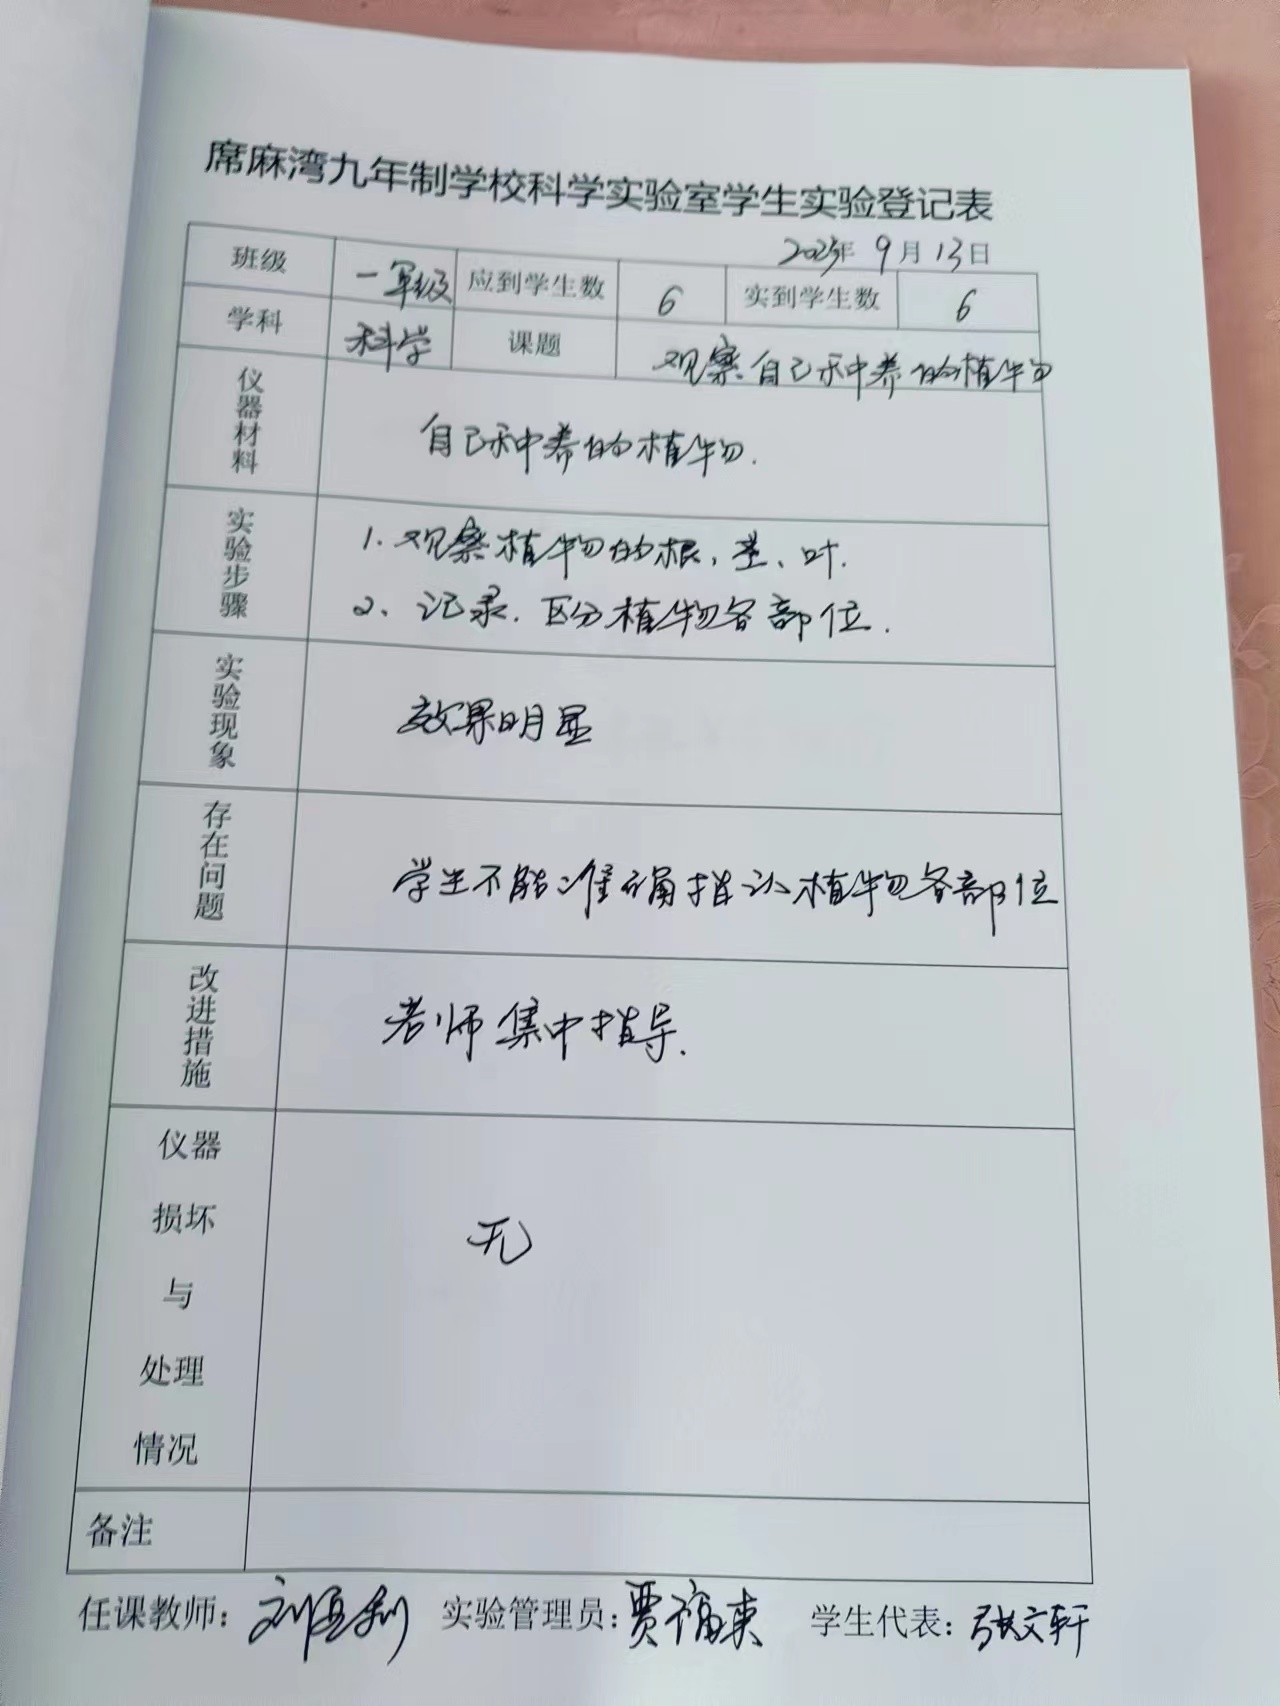 席麻湾九年制学校科学实验室学生实验登记表
2023年 9月 13日
班级 一年级 应到学生数 6 实到学生数 6
学科 科学 课题 观察自己种养的植物
仪器材料 自己种养的植物.
实验步骤 1.观察植物的根、茎、叶.
2、记录.区分植物各部位.
实验现象 效果明显
存在问题 学生不能准确指认植物各部位
改进措施 老师集中指导.
仪器
损坏
与 无
处理
情况
备注
任课教师: 实验管理员: 贾福東 学生代表: 张文轩